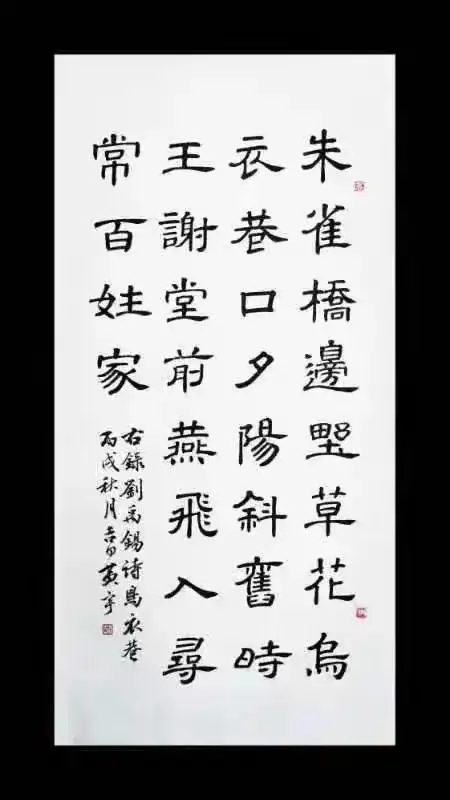 朱雀橋邊墅草花烏
衣巷口夕陽斜舊時
王謝堂前燕飛入尋
常百姓家
右錄劉禹錫詩烏衣巷
丙戌秋月吉日黃